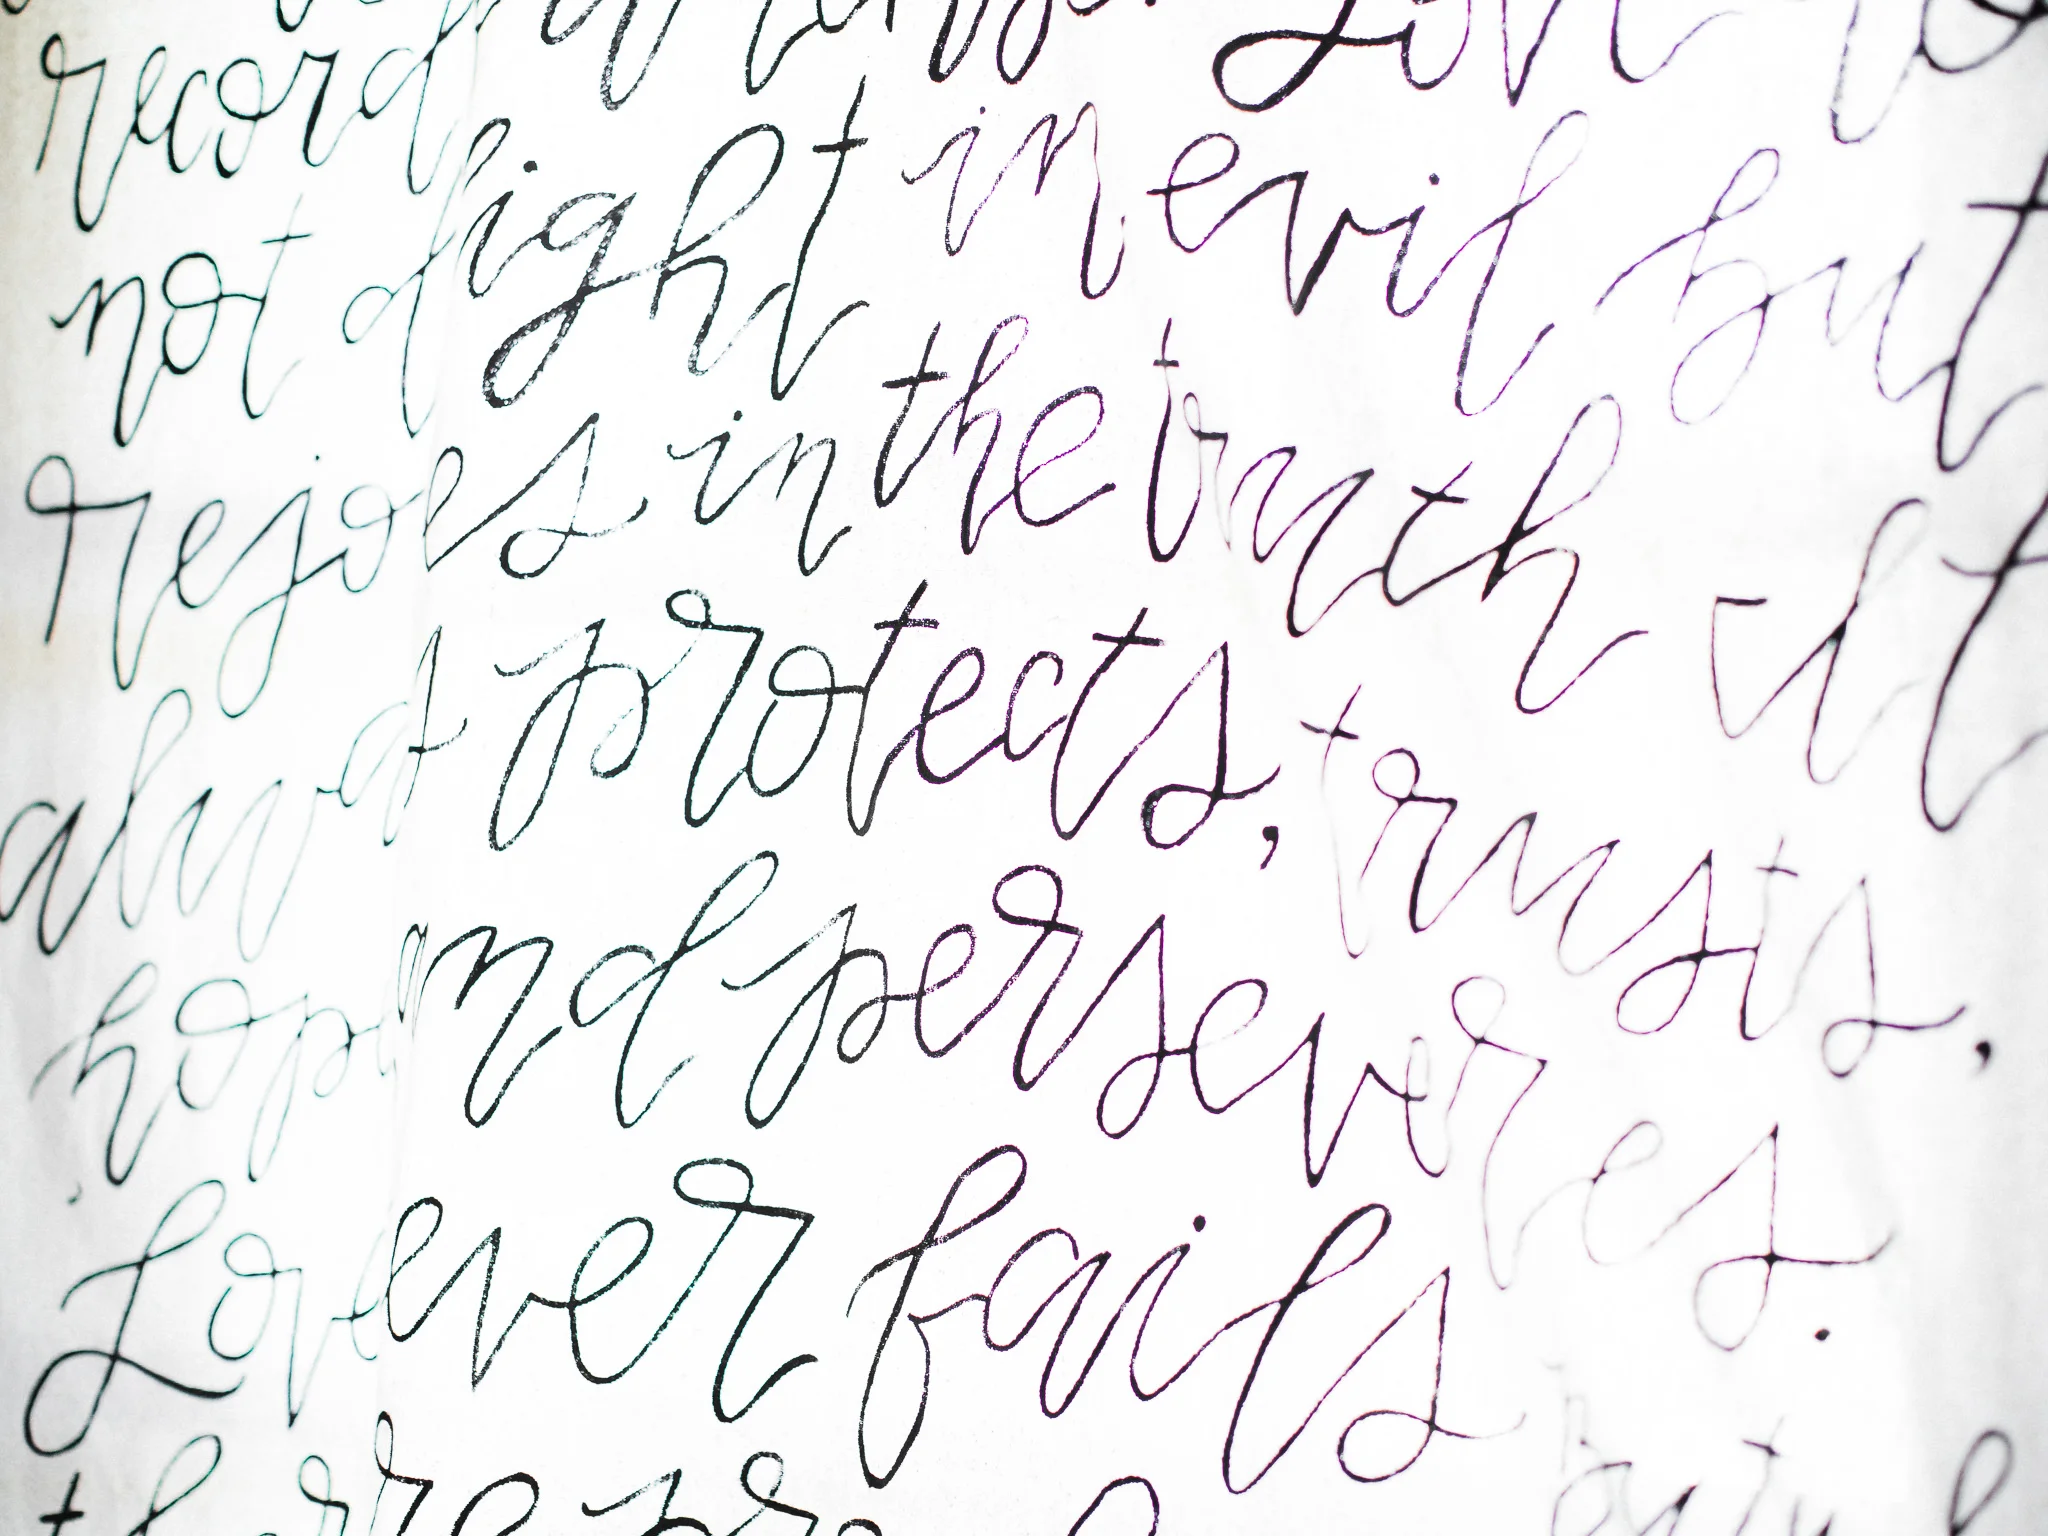 record
not d ight in evil but
rejoes in the truth It
alwa protects, trusts,
hop and perseveres.
Love ever fails